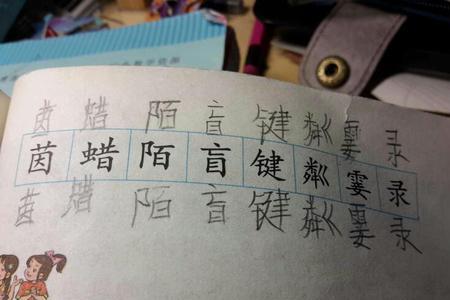 茵 蜡 陌 盲 键 粼 霎 录
茵 蜡 陌 盲 键 粼 霎 录
茵 蜡 陌 盲 键 粼 霎 录